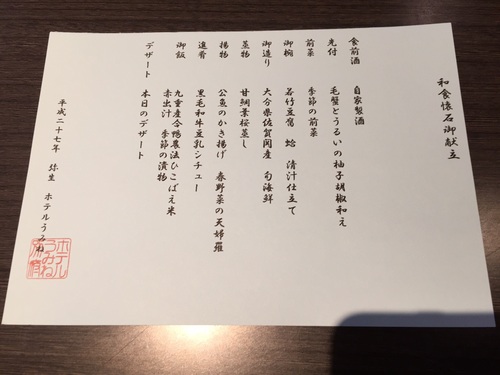 和食懐石御献立
食前酒 自家製酒
先付 毛蟹とうるいの柚子胡椒和え
前菜 季節の前菜
御椀 若竹豆腐 蛤 清汁仕立て
御造り 大分県佐賀関産 旬海鮮
蒸物 甘鯛葉桜蒸し
揚物 公魚のかき揚げ 春野菜の天婦羅
進肴 黒毛和牛豆乳シチュー
御飯 九重産合鴨農法ひこばえ米
赤出汁 季節の漬物
デザート 本日のデザート
平成二十七年 弥生 ホテルうみね
ホテル
うみね